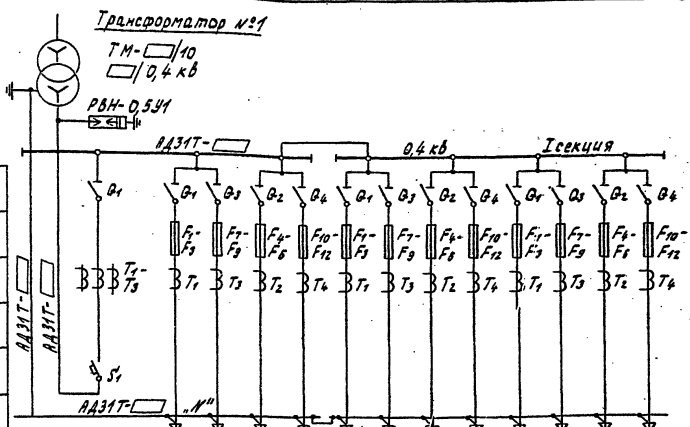 Трансформатор №1
ТМ-▭/10
▭/0,4 кв
РВН-0,5У1
АД31Т-▭ 0,4 кв I секция
Q1 Q1 Q3 Q2 Q4 Q1 Q3 Q2 Q4 Q1 Q3 Q2 Q4
F1-F3 F7-F9 F4-F6 F10-F12 F1-F3 F7-F9 F4-F6 F10-F12 F1-F3 F7-F9 F4-F6 F10-F12
T1-T3 T1 T3 T2 T4 T1 T3 T2 T4 T1 T3 T2 T4
АД31Т-▭
АД31Т-▭
S1
АД31Т-▭ „N"